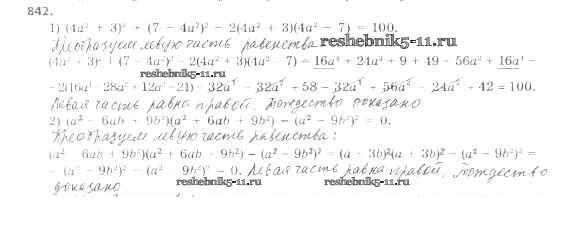 842.
1) (4a² + 3)² + (7 − 4a²)² − 2(4a² + 3)(4a² − 7) = 100.
Преобразуем левую часть равенства reshebnik5-11.ru
(4a² + 3)² + (7 − 4a²)² − 2(4a² + 3)(4a² − 7) = 16a⁴ + 24a² + 9 + 49 − 56a² + 16a⁴ −
reshebnik5-11.ru
− 2(16a⁴ − 28a² + 12a² − 21) = 32a⁴ − 32a² + 58 − 32a⁴ + 56a² − 24a² + 42 = 100.
Левая часть равна правой. Тождество доказано
2) (a² − 6ab + 9b²)(a² + 6ab + 9b²) − (a² − 9b²)² = 0.
Преобразуем левую часть равенства:
(a² − 6ab + 9b²)(a² + 6ab + 9b²) − (a² − 9b²)² = (a − 3b)²(a + 3b)² − (a² − 9b²)² =
= (a² − 9b²)² − (a² − 9b²)² = 0. Левая часть равна правой. Тождество
доказано reshebnik5-11.ru reshebnik5-11.ru